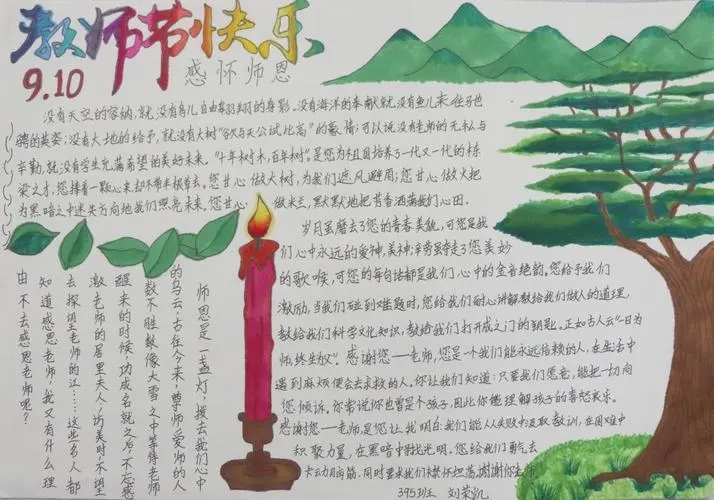 教师节快乐
9.10
感怀师恩
没有天空的容纳,就没有鸟儿自由翱翔的身影。没有海洋的奉献就没有鱼儿来往弛
骋的英姿;没有大地的给予,就没有大树“欲与天公试比高”的豪情;可以说没有老师的无私与
辛勤,就没有学生充满希望的美好未来。“十年树木,百年树人”。是您为祖国培养了一代又一代的栋
梁之才,您捧着一颗心来却不带半根草去。您甘心做大树,为我们遮风避雨;您甘心做火把
为黑暗之中迷失方向地我们照亮未来。您甘心做米兰,默默地把芳香洒满我们心田。
岁月虽磨去了您的青春美貌,可您是我
们心中永远的爱神,美神;辛劳虽夺走了您美妙
的歌喉,可您的每句话都是我们心中的金音绝韵。您给予我们
激励,当我们碰到难题时,您给我们耐心讲解教给我们做人的道理,
教给我们科学文化知识,教给我们打开成才之门的钥匙。正如古人云“一日为
师,终生为父”。感谢您——老师,您是一个我们能永远信赖的人,在生活中
遇到麻烦便会去求救的人,你让我们知道:只要我们愿意,能把一切向
您倾诉。你常说你也曾是个孩子,因此你懂理解孩子的喜怒哀乐。
感谢您——老师,是您让我明白:我们能从失败中汲取教训,在困难中
积聚力量,在黑暗中找光明。您给我们勇气去
同时要求我们襟怀坦荡,谢谢你老师
395班 刘荣凯
师恩是一盏灯,拨去我们心中
的乌云;古往今来,尊师爱师的人
数不胜数像大雪之中等待老师
醒来的时候,功成名就之后,不忘感
激老师的居里夫人;访美时,不望
去探望老师的江……这些名人都
知道感恩老师,我又有什么理
由不去感恩老师呢?